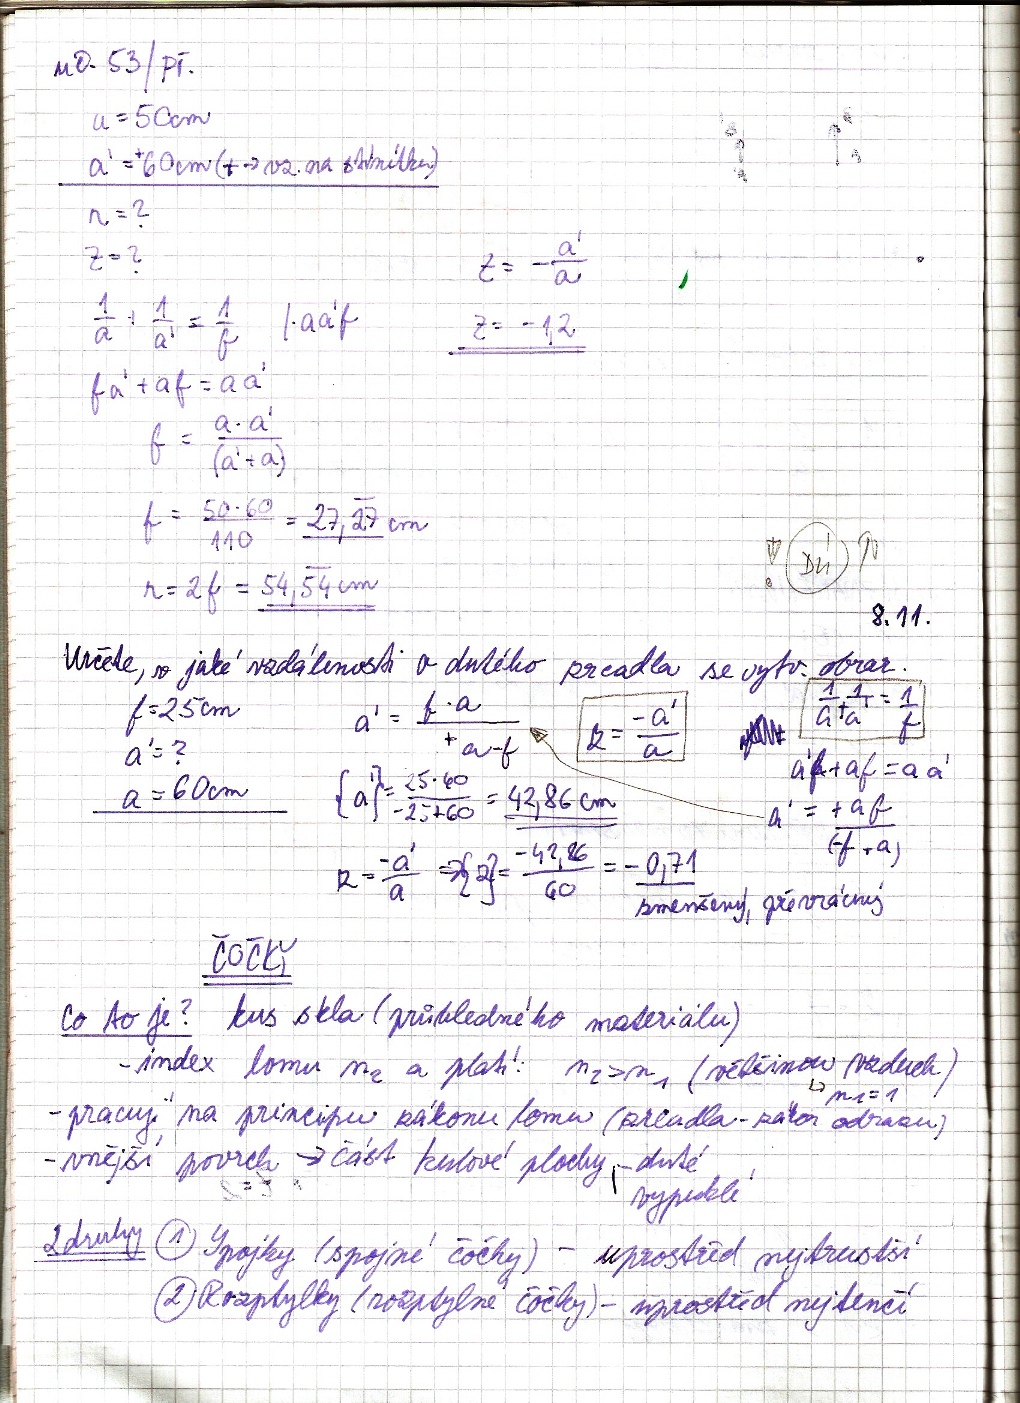 a = 50cm
a' = +60cm (+ → vz. na stínítku)
r = ?
Z = ?
Z = -a'/a
1/a + 1/a' = 1/f |·aa'f
Z = -1,2
fa' + af = aa'
f = a·a'/(a'+a)
f = 50·60/110 = 27,27 cm
r = 2f = 54,54 cm
DÚ
8.11.
Určete, v jaké vzdálenosti o dutého zrcadla se vytv. obraz.
f = 25cm
a' = f·a/+a-f
Z = -a'/a
1/a + 1/a' = 1/f
a' = ?
a'f + af = aa'
a = 60cm
{a'} = 25·60/-25+60 = 42,86 cm
a' = +af/(-f+a)
Z = -a'/a ⇒ {Z} = -42,86/60 = -0,71
zmenšený, převrácený
ČOČKY
Co to je? kus skla (průhledného materiálu)
- index lomu n2 a platí: n2 > n1 (většinou vzduch)
↳ n1 = 1
- pracují na principu zákonu lomu (zrcadla - zákon odrazu)
- vnější povrch → část kulové plochy - duté
vypuklé
2 druhy ① Spojky (spojné čočky) - uprostřed nejtrustší
② Rozptylky (rozptylné čočky) - uprostřed nejtenčí